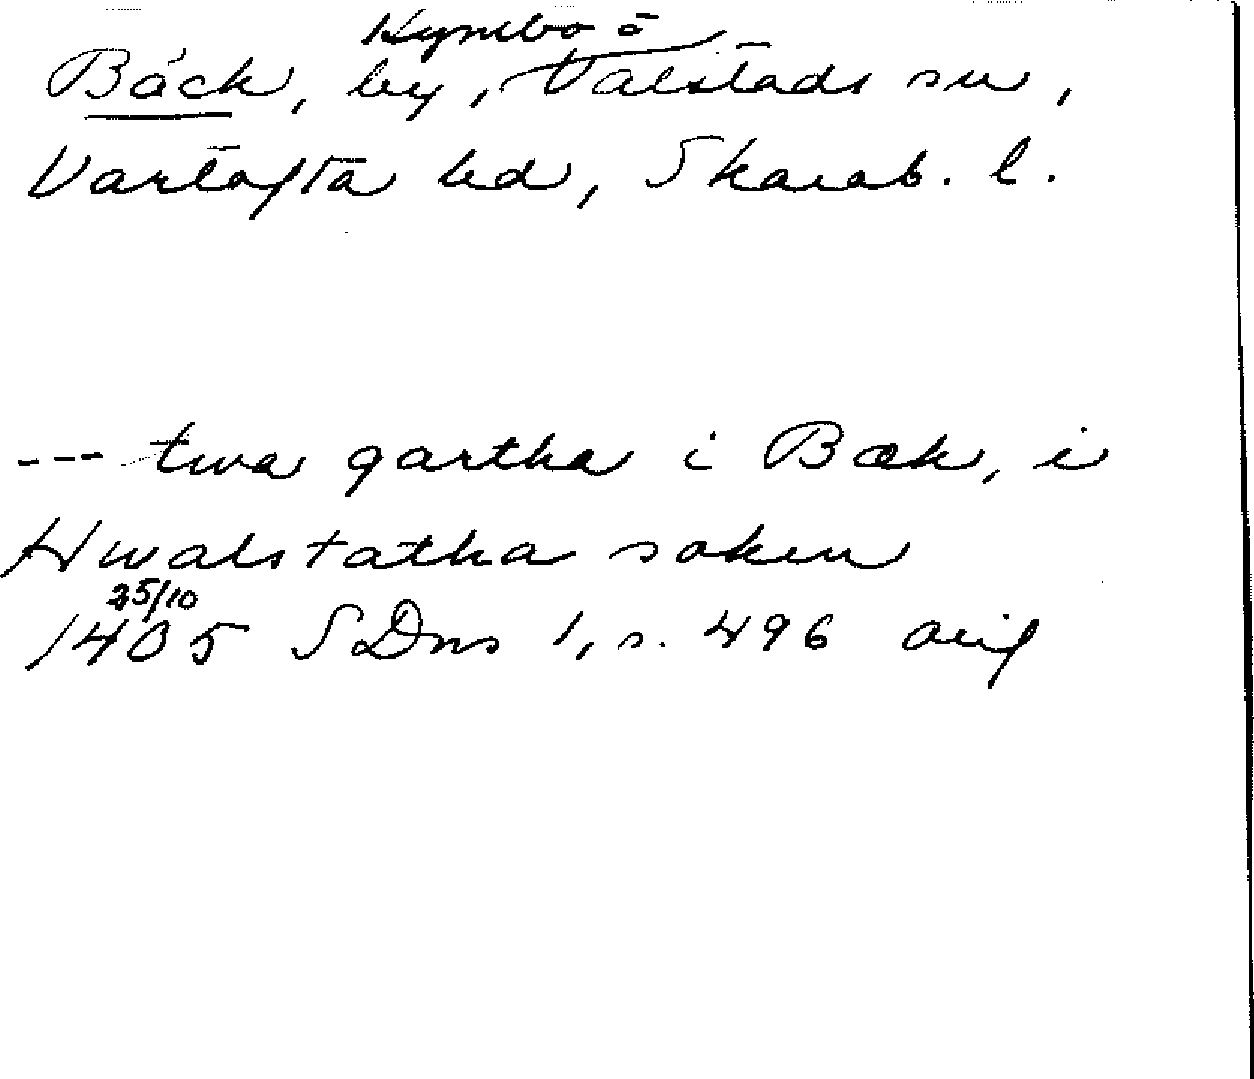 Kymbo ö
Bäck, by, Valstads sn,
Vartofta hd, Skarab. l.
--- twa gartha i Bæk, i
Hwalstatha soken
25/10
1405 SDns 1, s. 496 orig